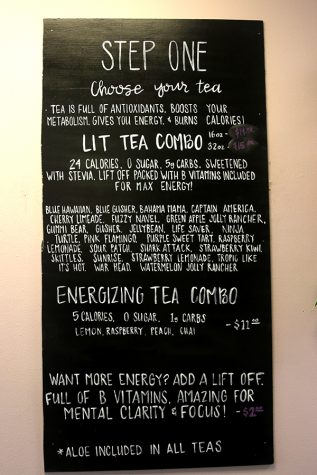 STEP ONE
Choose your tea
TEA IS FULL OF ANTIOXIDANTS, BOOSTS YOUR
METABOLISM, GIVES YOU ENERGY, & BURNS CALORIES!
LIT TEA COMBO 16oz -
32oz -
24 CALORIES, 0 SUGAR, 5g CARBS, SWEETENED
WITH STEVIA, LIFT OFF PACKED WITH B VITAMINS INCLUDED
FOR MAX ENERGY!
BLUE HAWAIIAN, BLUE GUSHER, BAHAMA MAMA, CAPTAIN AMERICA,
CHERRY LIMEADE, FUZZY NAVEL, GREEN APPLE JOLLY RANCHER,
GUMMI BEAR, GUSHER, JELLYBEAN, LIFE SAVER, NINJA
TURTLE, PINK FLAMINGO, PURPLE SWEET TART, RASPBERRY
LEMONADE, SOUR PATCH, SHARK ATTACK, STRAWBERRY KIWI,
SKITTLES, SUNRISE, STRAWBERRY LEMONADE, TROPIC LIKE
IT'S HOT, WAR HEAD, WATERMELON JOLLY RANCHER
ENERGIZING TEA COMBO
5 CALORIES, 0 SUGAR, 1g CARBS
LEMON, RASPBERRY, PEACH, CHAI - $11.00
WANT MORE ENERGY? ADD A LIFT OFF,
FULL OF B VITAMINS, AMAZING FOR
MENTAL CLARITY & FOCUS! -
*ALOE INCLUDED IN ALL TEAS